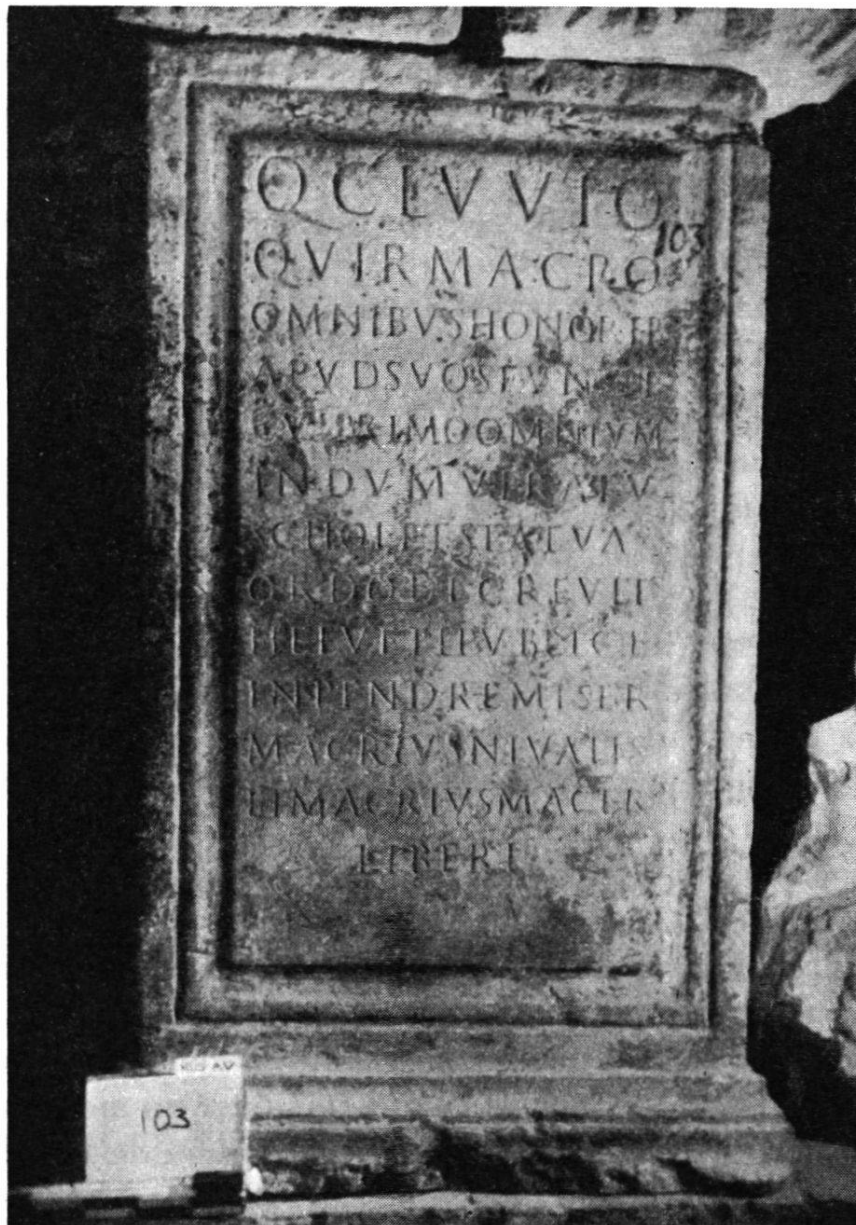 Q CLVVIO
103
QVIR MACRO
OMNIBVS HONORIB
APVD SVOS FVNCT
CVI PRIMO OMNIVM
IN DVMVIRATV
SCHOL ET STATVA
ORDO DECREVIT
HELVETII PVBLICE
INPEND REMISER
MACRIVS NIVALIS
ET MACRIVS MACER
LIBERI
103